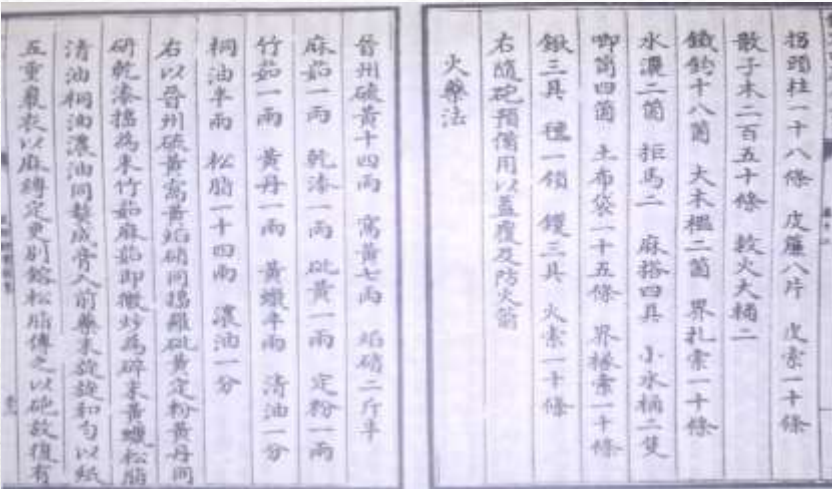 拐頭柱一十八條 皮簾八片 皮索一十條
散子木二百五十條 救火大桶二
鐵鉤十八箇 大木檻二箇 界扎索一十條
水濃二箇 拒馬二 麻搭四具 小水桶二隻
唧筒四箇 土布袋一十五條 界椽索一十條
鍬三具 氊一領 钁三具 火索一十條
右隨砲預備用以蓋覆及防火箭
火藥法
晉州硫黃十四兩 窩黃七兩 焰硝二斤半
麻茹一兩 乾漆一兩 砒黃一兩 定粉一兩
竹茹一兩 黃丹一兩 黃蠟半兩 清油一分
桐油半兩 松脂一十四兩 濃油一分
右以晉州硫黃窩黃焰硝同擣羅砒黃定粉黃丹同
研乾漆擣為末竹茹麻茹即微炒為碎末黃蠟松脂
清油桐油濃油同熬成膏入前藥末旋旋和勻以紙
五重裹衣以麻縛定更別鎔松脂傅之以砲放復有